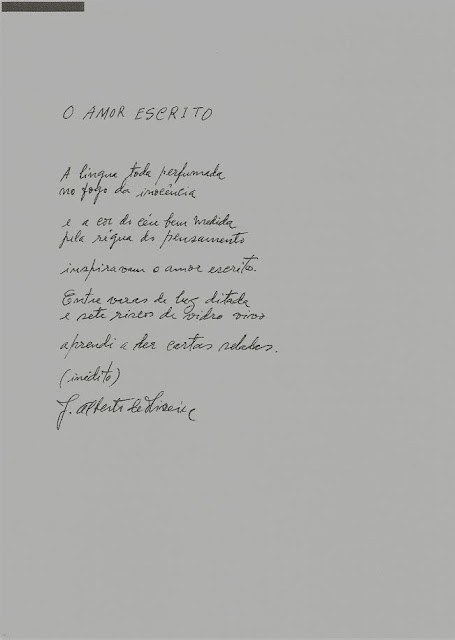 O AMOR ESCRITO
A língua toda perfumada
no fogo da inocência
e a cor do céu bem medida
pela régua do pensamento
inspiravam o amor escrito.
Entre vozes de luz ditada
e sete riscos de vidro vivo
aprendi a ler cartas seladas.
(inédito)
J. Alberto de Oliveira